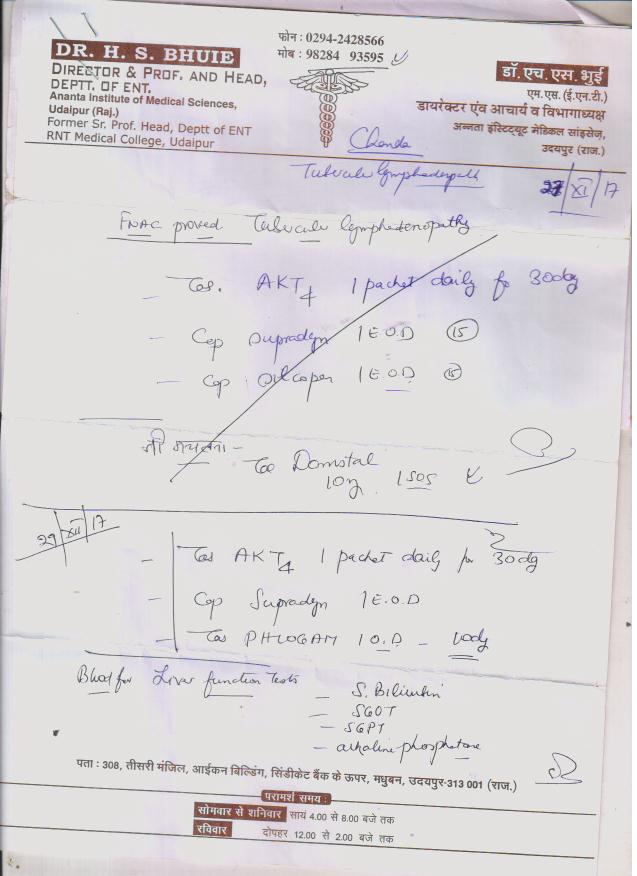 फोन : 0294-2428566
मोब : 98284 93595
DR. H. S. BHUIE
DIRECTOR & PROF. AND HEAD,
DEPTT. OF ENT.
Ananta Institute of Medical Sciences,
Udaipur (Raj.)
Former Sr. Prof. Head, Deptt of ENT
RNT Medical College, Udaipur
डॉ. एच. एस. भुई
एम.एस. (ई.एन.टी.)
डायरेक्टर एंव आचार्य व विभागाध्यक्ष
अन्नता इंस्टिट्यूट मेडिकल सांइसेज,
उदयपुर (राज.)
Chanda
27/XI/17
FNAC proved Tubercula lymphadenopathy
- Tab. AKT4 1 packet daily for 30day
- Cap Supradyn 1 E.O.D (15)
- Cap 1 E.O.D (15)
जी मचलना -
Tab Domstal
10mg 1 SOS
29/XII/17
- Tab AKT4 1 packet daily for 30day
- Cap Supradyn 1 E.O.D
- Tab PHLOGAM 1 O.D - 10day
Blood for Liver function Tests
- S. Bilirubin
- SGOT
- SGPT
- alkaline phosphatase
पता : 308, तीसरी मंजिल, आईकन बिल्डिंग, सिंडीकेट बैंक के ऊपर, मधुबन, उदयपुर-313 001 (राज.)
परामर्श समय :
सोमवार से शनिवार सायं 4.00 से 8.00 बजे तक
रविवार दोपहर 12.00 से 2.00 बजे तक